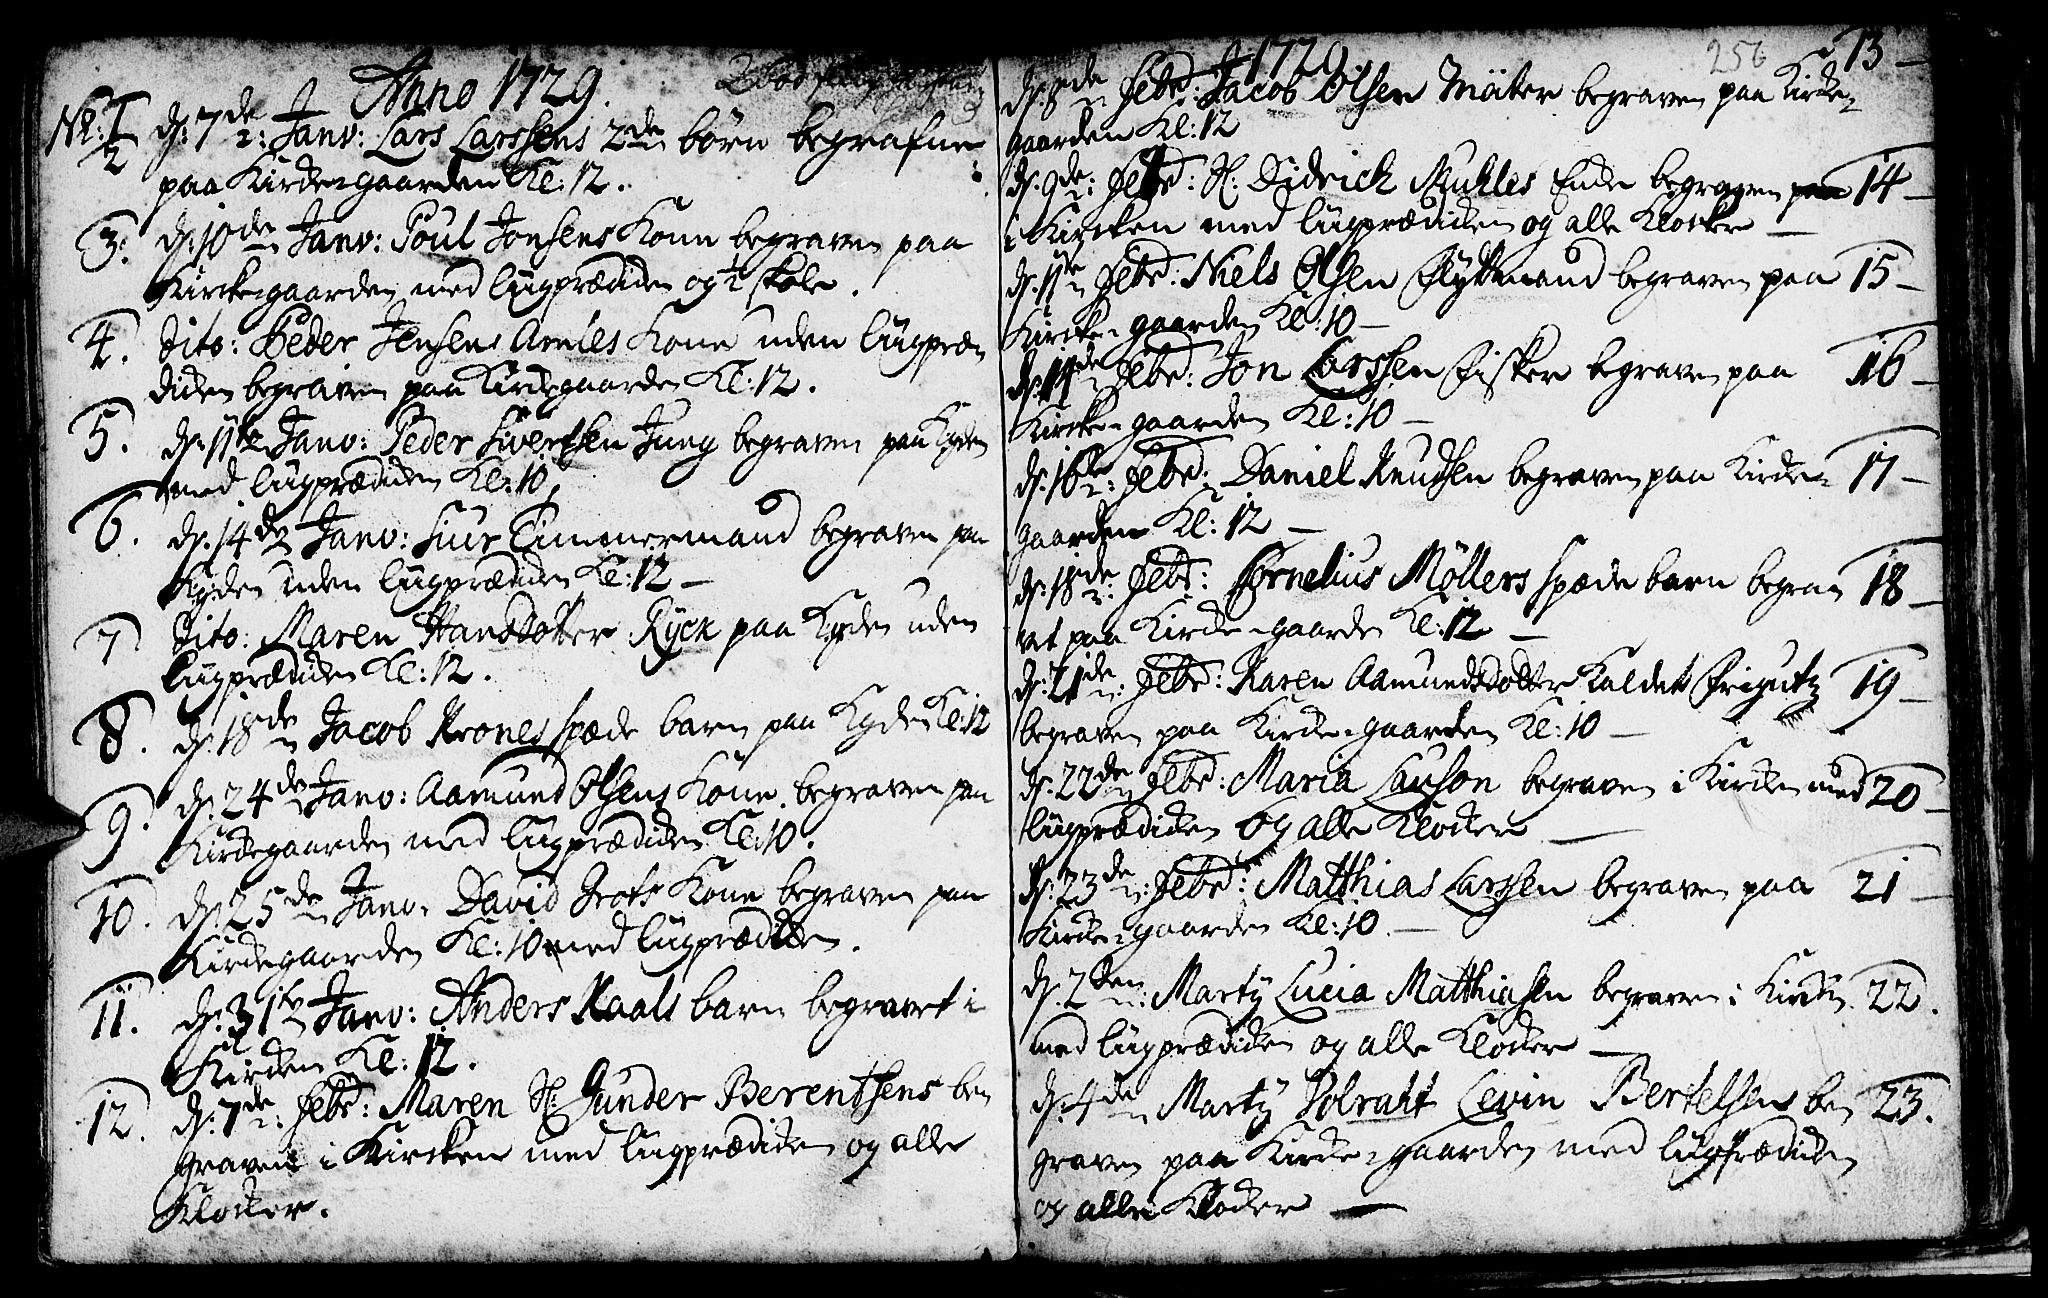 Anno 1729.
No: 1 d: 7de Janv: Lars Larssens 2de börn begrafne
2 paa Kirckegaarden Kl: 12.
3: d: 10de Janv: Poul Jonsens Kone begraven paa
Kircke-gaarden med liigprædicken og ½ skole.
4. Dito: Peder Jensens Kone uden liigpræ-
dicken begraven paa Kirckegaarden Kl: 12.
5. d: 11te Janv: Peder Sivertsen Jung begraven paa Kgden
med liigprædicken Kl: 10
6. d: 14de Janv: Siur Timmermand begraven paa
Kgden uden liigprædicken Kl: 12 –
7 Dito: Maren Hansdotter Ryck paa Kgden uden
liigprædicken Kl: 12.
8. d: 18de Jacob Krones spæde barn paa Kgden Kl: 12
9. d: 24de Janv: Aamund Olsens Kone begraven paa
Kirckegaarden med liigprædicken Kl: 10.
10. d: 25de Janv: David Kone begraven paa
Kirckegaarden Kl: 10 med liigprædicken.
11. d: 31te Janv: Anders Kaals barn begravet i
Kircken Kl: 12.
12. d: 7de Febr: Maren Hr: Gunder Berentsens be-
graven i Kircken med liigprædicken og alle
Klocker.
256
1729
d: 8de Febr: Jacob Olsen begraven paa Kircke- 13 –
gaarden Kl: 12
d: 9de: Febr: Hr: Didrick Muhles Encke begraven 14 –
i Kircken med liigprædicken og alle Klocker –
d: 11te Febr: Niels Olsen Flyttmand begraven paa 15 –
Kircke-gaarden Kl: 10 –
d: 14de Febr: Jon Larssen Fisker begraven paa 16 –
Kircke-gaarden Kl: 10 –
d: 16de: Febr: Daniel Knudsen begraven paa Kircke- 17 –
gaarden Kl: 12 –
d: 18de Febr: Cornelius Möllers spæde barn begra- 18 –
vet paa Kircke-gaarden Kl: 12 –
d: 21de: Febr: Karen Aamundsdotter Kaldet 19 –
begraven paa Kircke-gaarden Kl: 10 –
d: 22de Febr: Maria Lauson begraven i Kircken med 20 –
liigprædicken og alle Klocker –
d: 23de: Febr: Matthias Larssen begraven paa 21 –
Kircke-gaarden Kl: 10. –
d: 2den: Martij Lucia Matthiasen begraven i Kircken 22.
med liigprædicken og alle Klocker –
d: 4de Martij Volraht Levin Bertelsen be- 23.
graven paa Kircke-gaarden med liigprædicken
og alle Klocker –